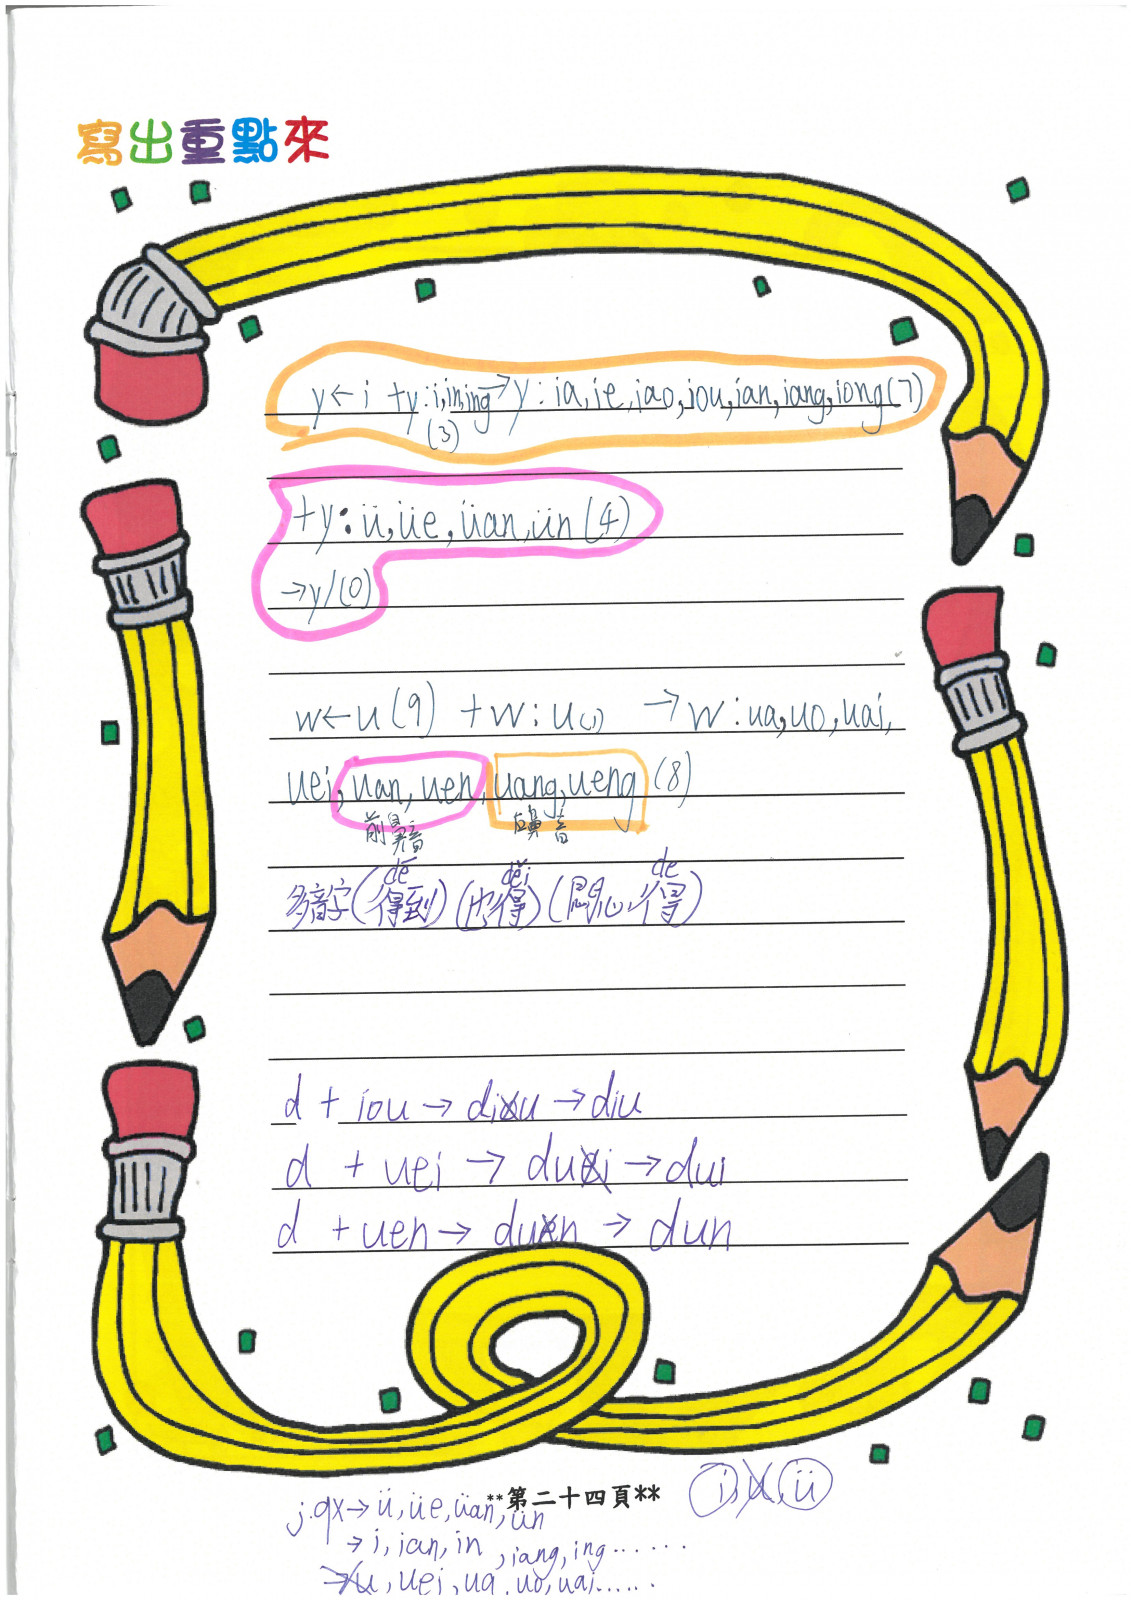 寫出重點來
y←i +y:i,in,ing→y:ia,ie,iao,iou,ian,iang,iong(7)
(3)
+y:ü,üe,üan,ün(4)
→y/(0)
w←u(9) +w:u(1) →w:ua,uo,uai,
uei,uan,uen,uang,ueng(8)
前鼻音 鼻音
dé děi de
多音字(得到)(也得)(開心得)
d + iou → diou → diu
d + uei → duei → dui
d + uen → duen → dun
**第二十四頁** i,u,ü
j.qx→ü,üe,üan,ün
→i,ian,in,iang,ing......
→u,uei,ua.uo,uai......